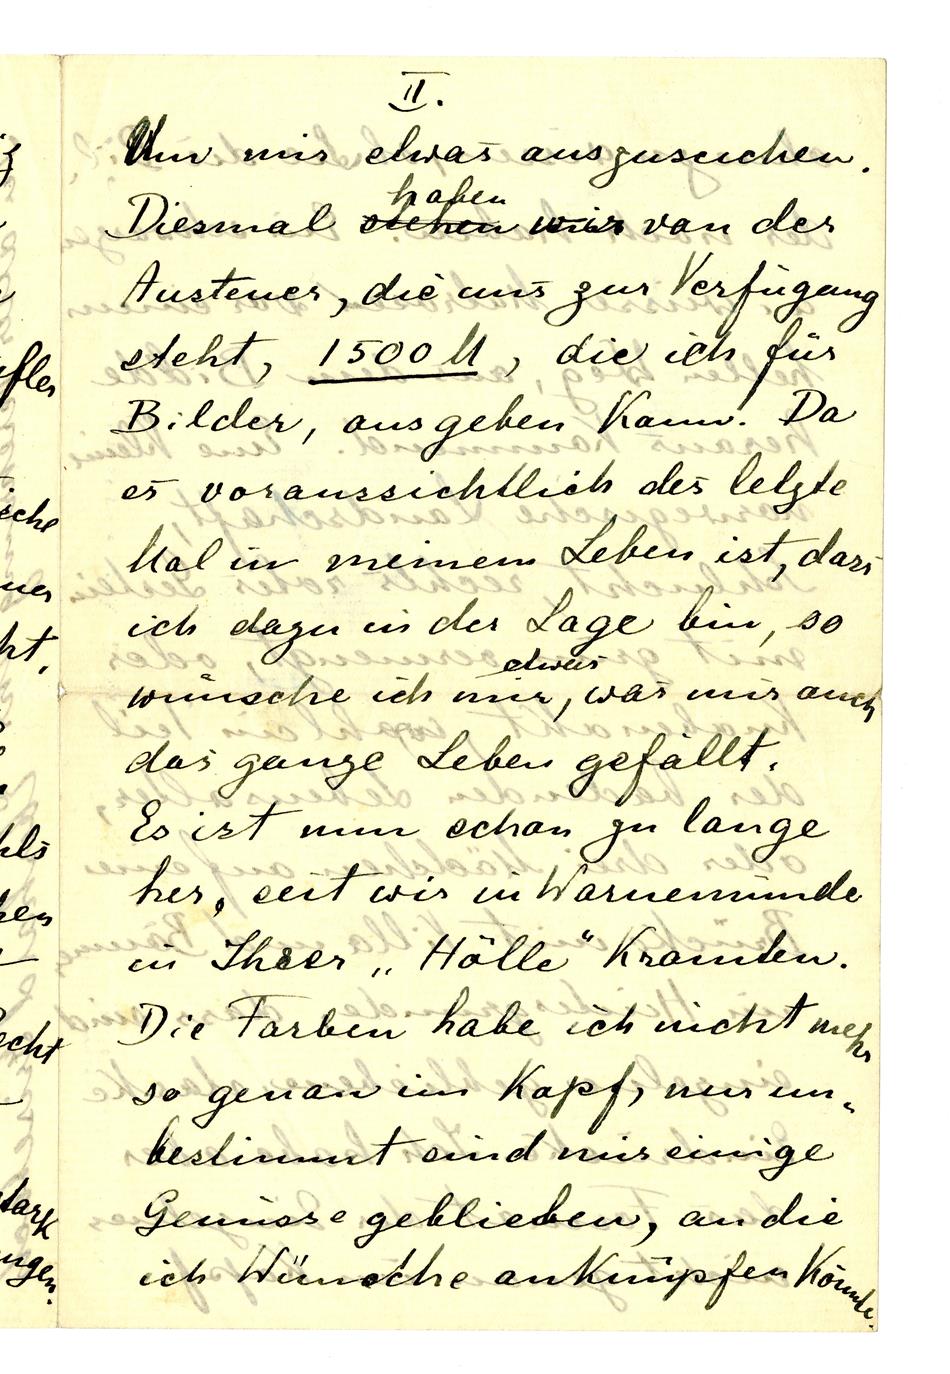 II.
Um mir etwas auszusuchen.
haben
Diesmal stehen wir von der
Austeuer, die uns zur Verfügung
steht, 1500 M, die ich für
Bilder, ausgeben kann. Da
es voraussichtlich des letzte
Mal in meinem Leben ist, dass
ich dazu in der Lage bin, so
etwas
wünsche ich mir, was mir auch
das ganze Leben gefällt.
Es ist nun schon zu lange
her, seit wir in Warnemünde
in Ihrer „Hölle“ kramten.
Die Farben habe ich nicht mehr
so genau im Kopf, nur un-
bestimmt sind mir einige
Genüsse geblieben, an die
ich Wünsche anknüpfen könnte.
fles
sche
ner
ht,
hls
hen
echt
stark
ngen.